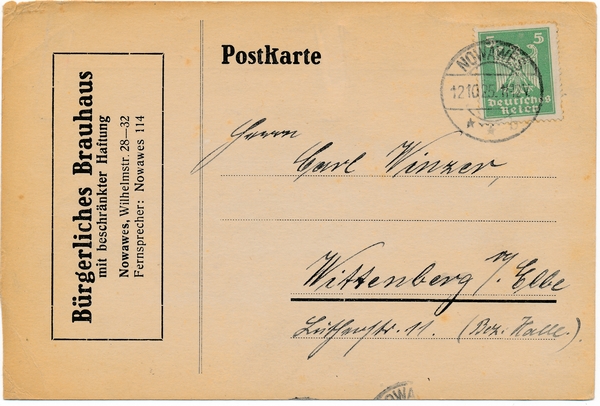 Bürgerliches Brauhaus
mit beschränkter Haftung
Nowawes, Wilhelmstr. 28—32
Fernsprecher: Nowawes 114
Postkarte
5 5
Deutsches
Reich
NOWAWES
12.10.25
Herrn
Carl Winzer,
Wittenberg a/. Elbe
Lutherstr. 11. (Bez. Halle.)
NOWA